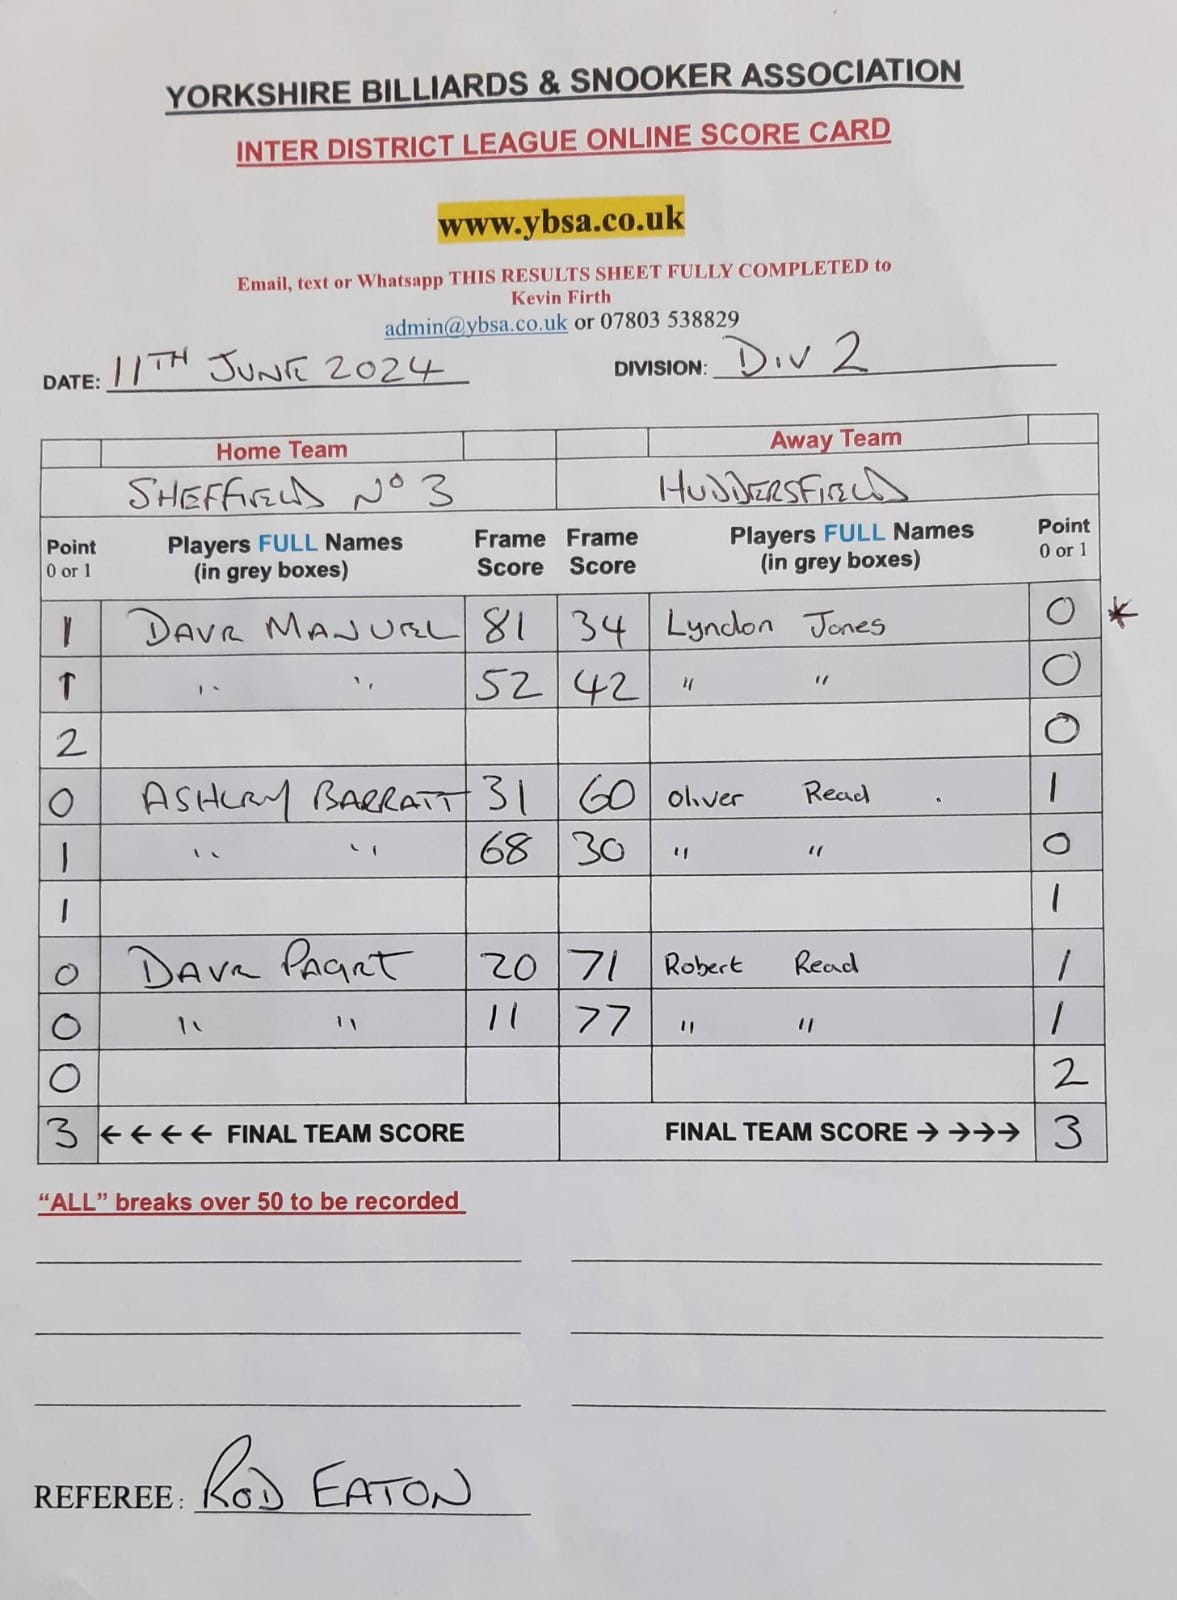 YORKSHIRE BILLIARDS & SNOOKER ASSOCIATION
INTER DISTRICT LEAGUE ONLINE SCORE CARD
www.ybsa.co.uk
Email, text or Whatsapp THIS RESULTS SHEET FULLY COMPLETED to
Kevin Firth
admin@ybsa.co.uk or 07803 538829
DATE: 11TH JUNE 2024 DIVISION: DIV 2
Home Team Away Team
SHEFFIELD No 3 HUDDERSFIELD
Point 0 or 1 Players FULL Names (in grey boxes) Frame Score Frame Score Players FULL Names (in grey boxes) Point 0 or 1
1 DAVE MANUEL 81 34 Lyndon Jones 0 *
1 " " 52 42 " " 0
2 0
0 ASHLEY BARRATT 31 60 Oliver Read . 1
1 " " 68 30 " " 0
1 1
0 DAVE PAGET 20 71 Robert Read 1
0 " " 11 77 " " 1
0 2
3 ←←←← FINAL TEAM SCORE FINAL TEAM SCORE → →→→ 3
“ALL” breaks over 50 to be recorded
REFEREE: ROD EATON